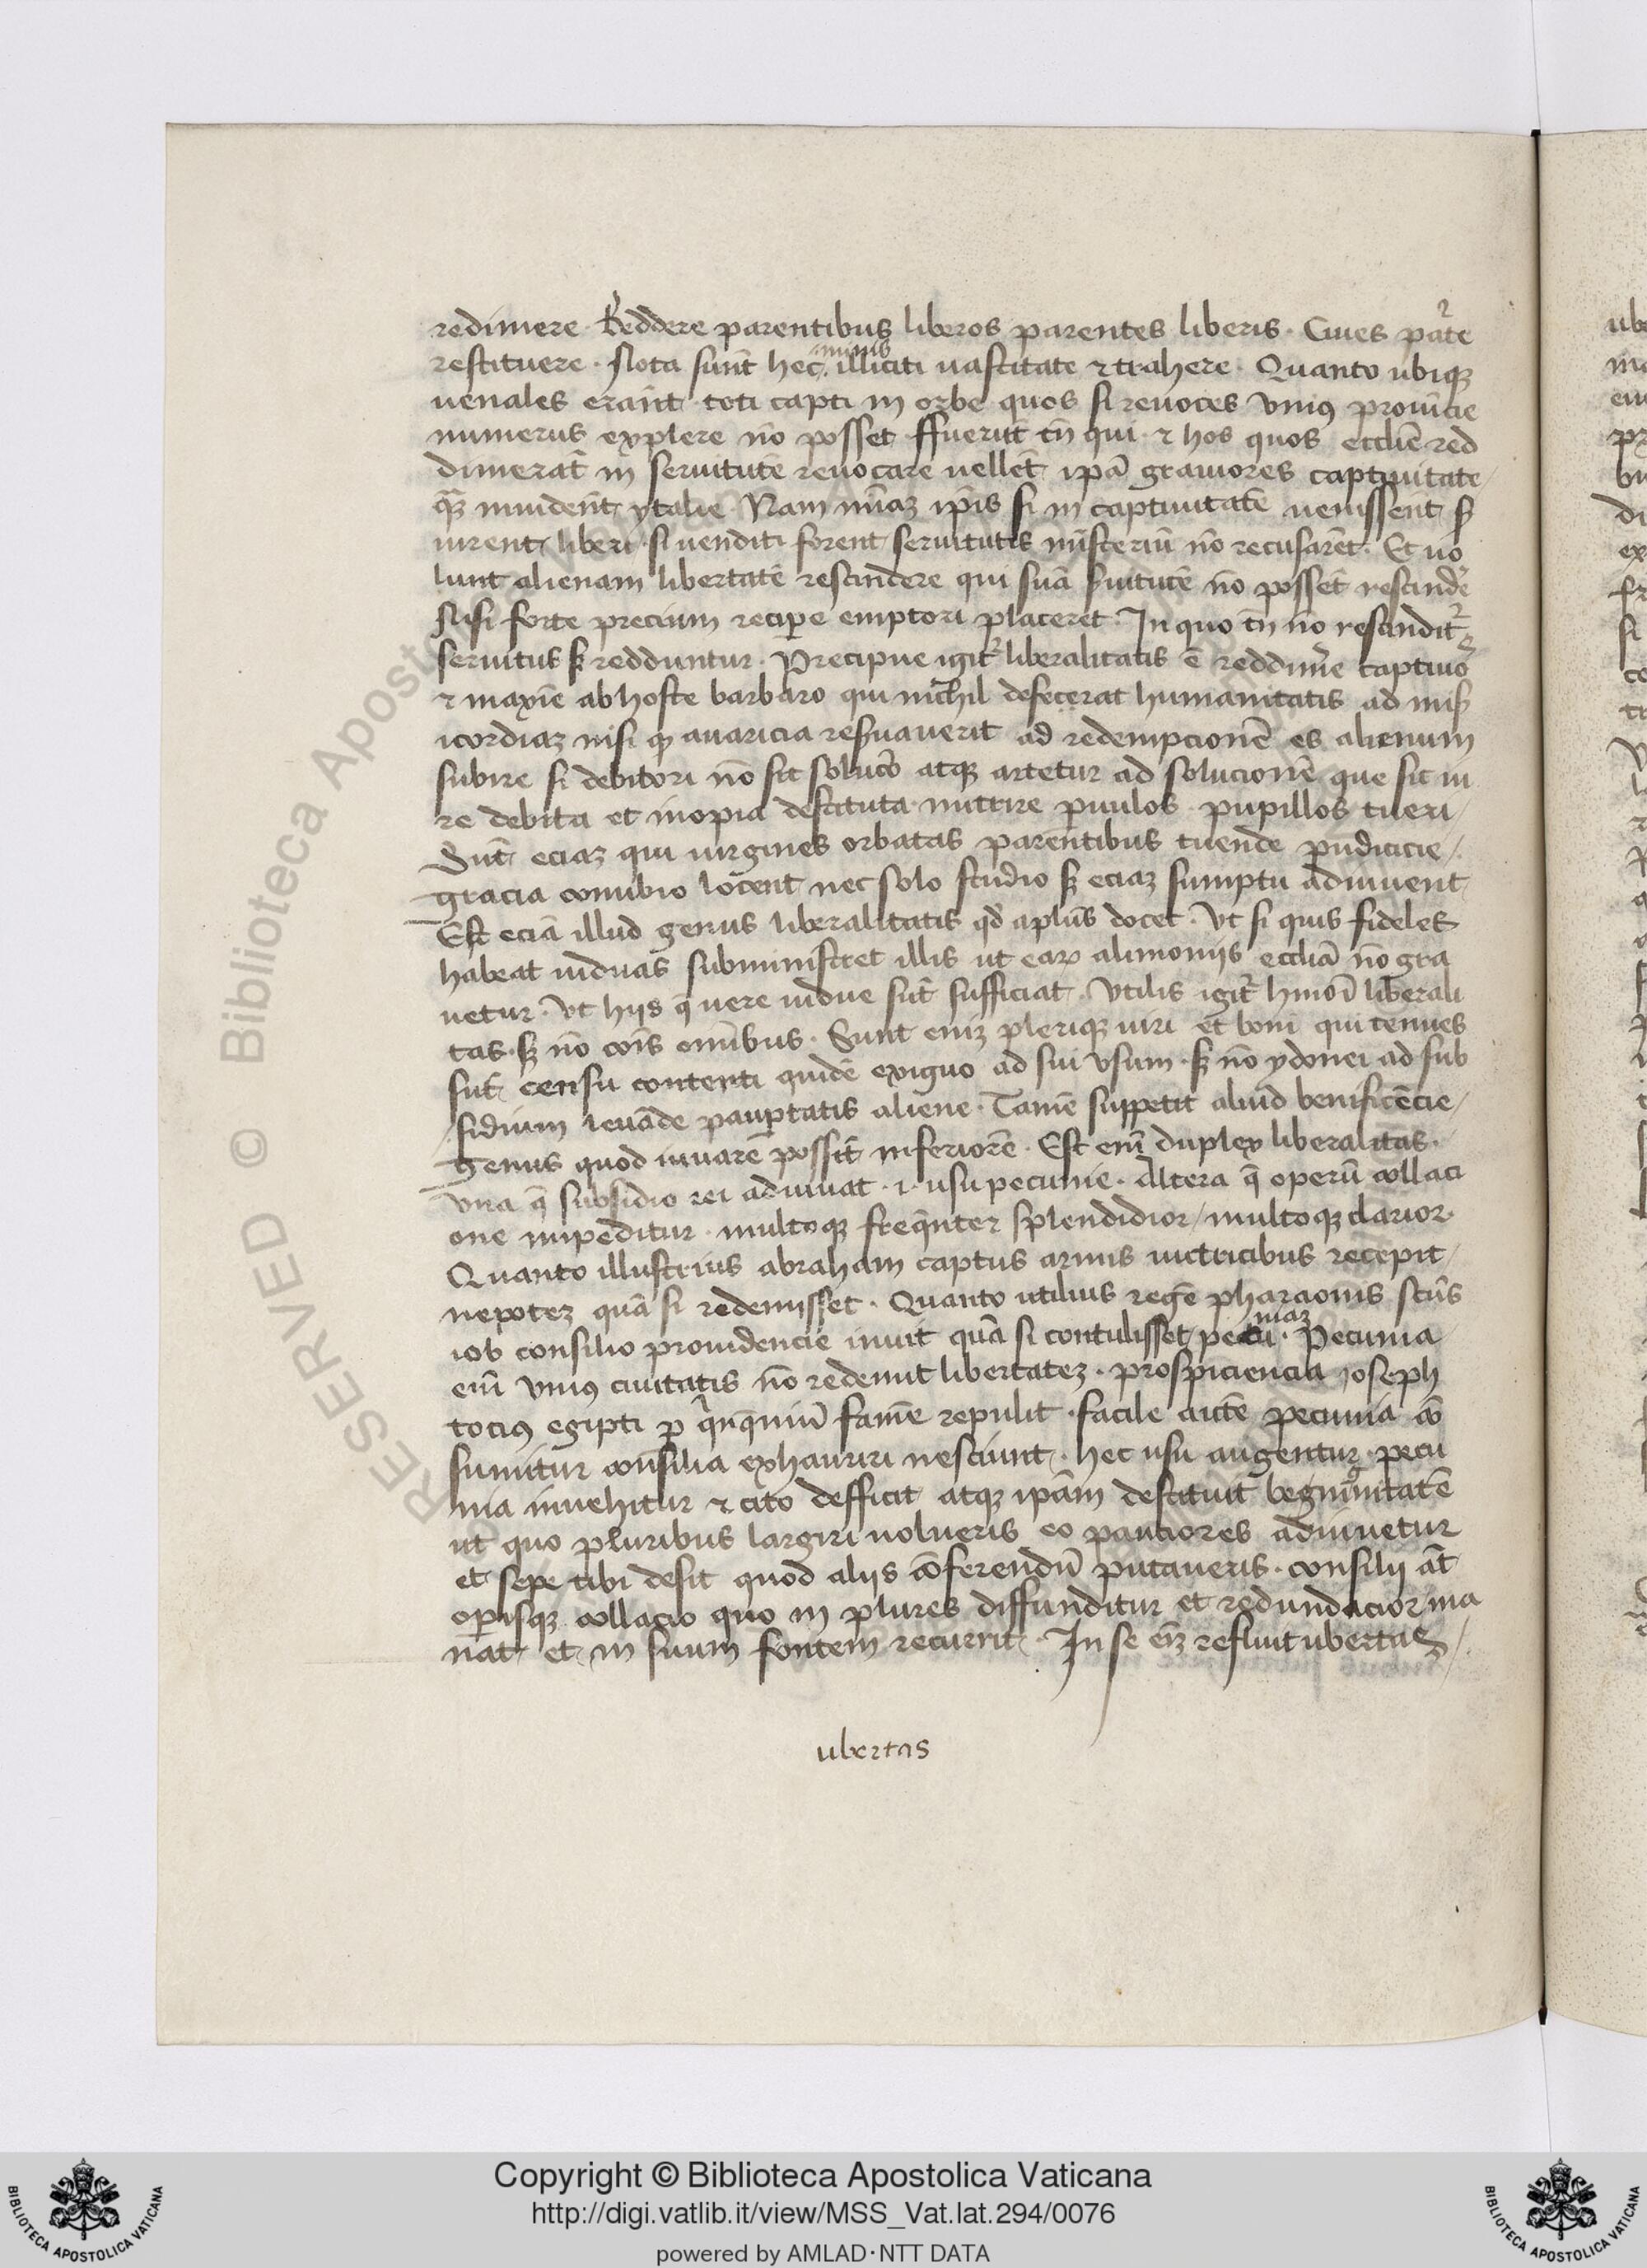 redimere. Reddere parentibus liberos parentes liberis. Ciues pat̄e
restituere. Nota sunt hec nimis illiciti uastitate ⁊ trahere. Quanto ubiqꝫ
uenales erant toti capti in orbe quos si reuoces vniꝰ prouīcie
numerus explere nō posset ffuerūt tn̄ qui ⁊ hos quos eccliē red
dimerāt in seruitutē reuocare uellēt ipā grauiores captiuitate
q̄ꝫ inuidēt ytalie. Nam ipīs si in captiuitatē uenissent s̄
uirent liberi si uenditi forent seruitutis mīsteriū nō recusarēt. Et uo
lunt alienam libertatē rescindere qui suā ẜuitutē nō possēt rescindē
Nisi forte precium recipe emptori placeret. In quo tn̄ nō rescindit̄
seruitus sꝫ redduntur. Precipue igit̄ liberalitatis ē reddim̄e captiuo
⁊ maxīe ab hoste barbaro qui nichil defecerat humanitatis ad miẜ
icordiaꝫ nisi qꝫ auaricia reẜuauerit ad redempcionē es alienum
subire si debitori nō sit soluc̄o atqꝫ artetur ad solucionē que sit iu
re debita et inopia destituta nutrire ꝑuulos pupillos tueri
Sūt eciaꝫ qui uirgines orbatas parentibus tuende pudicicie
gracia conubio locent nec solo studio sꝫ eciaꝫ sumptu adiuuent
Est eciā illud genus liberalitatis qd̄ aplūs docet. Vt si quis fideles
habeat uiduas subministret illis ut eaꝝ alimoniis eccliā nō gra
uetur. Vt hijs q̄ uere uidue sūt sufficiat. Vtilis igit̄ hmōi liberali
tas. sꝫ nō cōis omībus. Sunt eniꝫ pleriqꝫ uiri et boni qui tenues
sūt censu contenti quidē exiguo ad sui vsum. sꝫ nō ydonei ad sub
sidium leuāde paupertatis aliene. Tamē suppetit aliud benificēcie
genus quod iuuarē possit inferiorē. Est enī duplex liberalitas.
vna q̄ subsidio rei adiuuat .i. usu pecunie. Altera q̄ operū collaci
one impeditur. multoqꝫ freq̄nter splendidior multoqꝫ clarior.
Quanto illustrius abraham captus armis uictricibus recepit
nepoteꝫ quā si redemisset. Quanto utilius regē pharaonis sct̄s
iob consilio prouidencie iuuit quā si contulisset pecuniaꝫ. Pecunia
enī vniꝰ ciuitatis nō redemit libertateꝫ. prospiciencia ioseph
tociꝰ egipti ꝑ q̄nq̄nniū famē repulit. facile autē pecunia cō
sumitur consilia exhauriri nesciunt. hec usu augentur pecu
nia inuehitur ⁊ cito defficit atqꝫ ipām destituit begninitatē
ut quo pluribus largiri uolueris eo pauciores adiuuetur
et sepe tibi desit quod aliis cōferendū putaueris. consilii āt
operisqꝫ collacio quo in plures diffunditur et redundacior ma
nat et in suum fontem recurrit. In se eīꝫ refluit ubertas
ubertas
RESERVED © Biblioteca Apostolica Vaticana
Copyright © Biblioteca Apostolica Vaticana
http://digi.vatlib.it/view/MSS_Vat.lat.294/0076
powered by AMLAD·NTT DATA
BIBLIOTECA APOSTOLICA VATICANA
BIBLIOTECA APOSTOLICA VATICANA